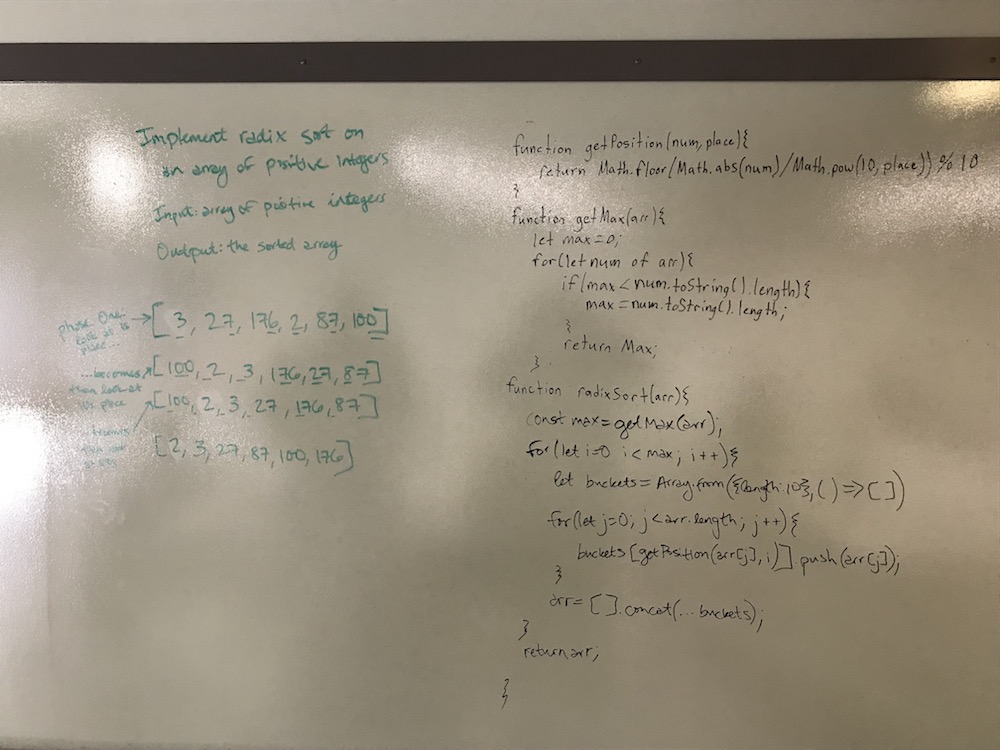 Implement radix sort on
an array of positive integers
Input: array of positive integers
Output: the sorted array
phase one: look at 1s place...
[3, 27, 176, 2, 87, 100]
...becomes
[100, 2, 3, 176, 27, 87]
then look at
10s place
[100, 2, 3, 27, 176, 87]
...becomes
[2, 3, 27, 87, 100, 176]
function getPosition(num, place){
return Math.floor(Math.abs(num)/Math.pow(10, place)) % 10
}
function getMax(arr){
let max=0;
for(let num of arr){
if(max<num.toString().length){
max=num.toString().length;
}
return Max;
}
function radixSort(arr){
const max=getMax(arr);
for(let i=0 i<max; i++){
let buckets = Array.from({length:10},()=>[])
for(let j=0; j<arr.length; j++){
buckets[getPosition(arr[j],i)].push(arr[j]);
}
arr= [].concat(...buckets);
}
return arr;
}